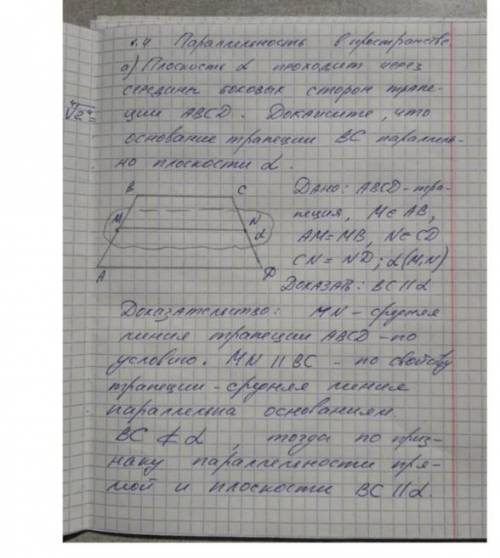 4 Параллельность в пространстве.
а) Плоскость α проходит через
середины боковых сторон трапе-
ции ABCD. Докажите, что
основание трапеции BC параллель-
но плоскости α.
B C
M N
α
A D
Дано: ABCD - тра-
пеция, M∈AB,
AM=MB, N∈CD
CN=ND; α(M,N)
Доказать: BC∥α
Доказательство: MN - средняя
линия трапеции ABCD - по
условию. MN∥BC - по свойству
трапеции - средняя линия
параллельна основаниям.
BC⊄α, тогда по приз-
наку параллельности пря-
мой и плоскости BC∥α.